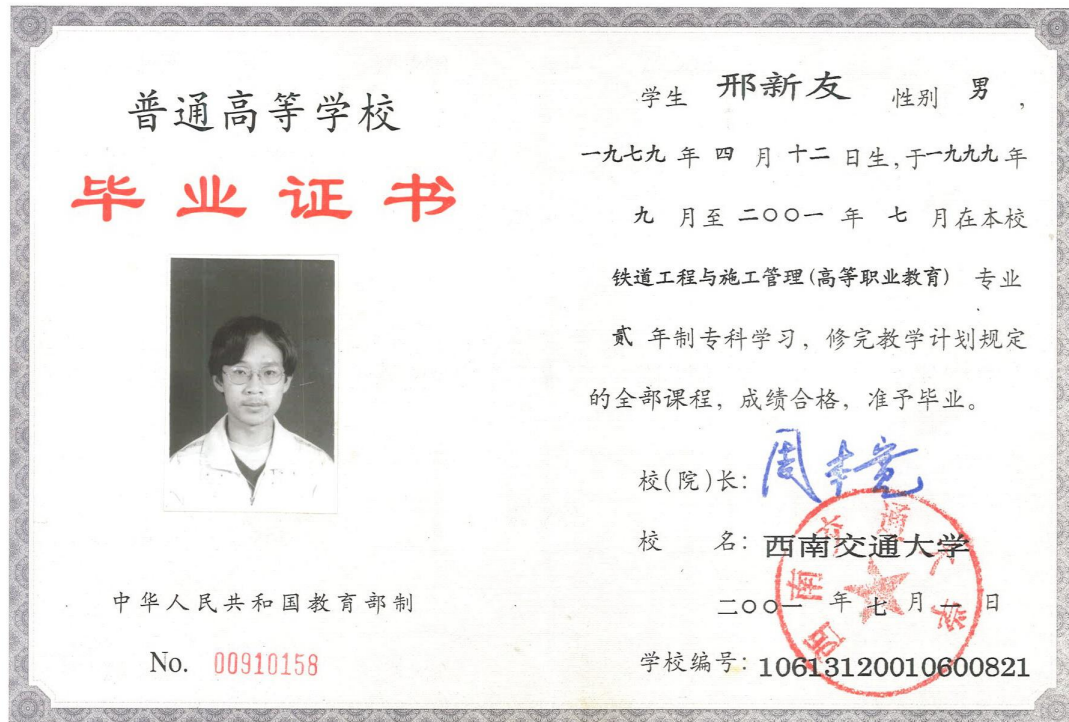 普通高等学校
毕业证书
中华人民共和国教育部制
No. 00910158
学生 邢新友 性别 男 ,
一九七九 年 四 月 十二 日生,于一九九九 年
九 月至 二〇〇一 年 七 月在本校
铁道工程与施工管理(高等职业教育) 专业
贰 年制专科学习, 修完教学计划规定
的全部课程, 成绩合格, 准予毕业。
校(院)长:
校 名: 西南交通大学
二〇〇一 年 七 月 一 日
学校编号: 10613120010600821
西南交通大学